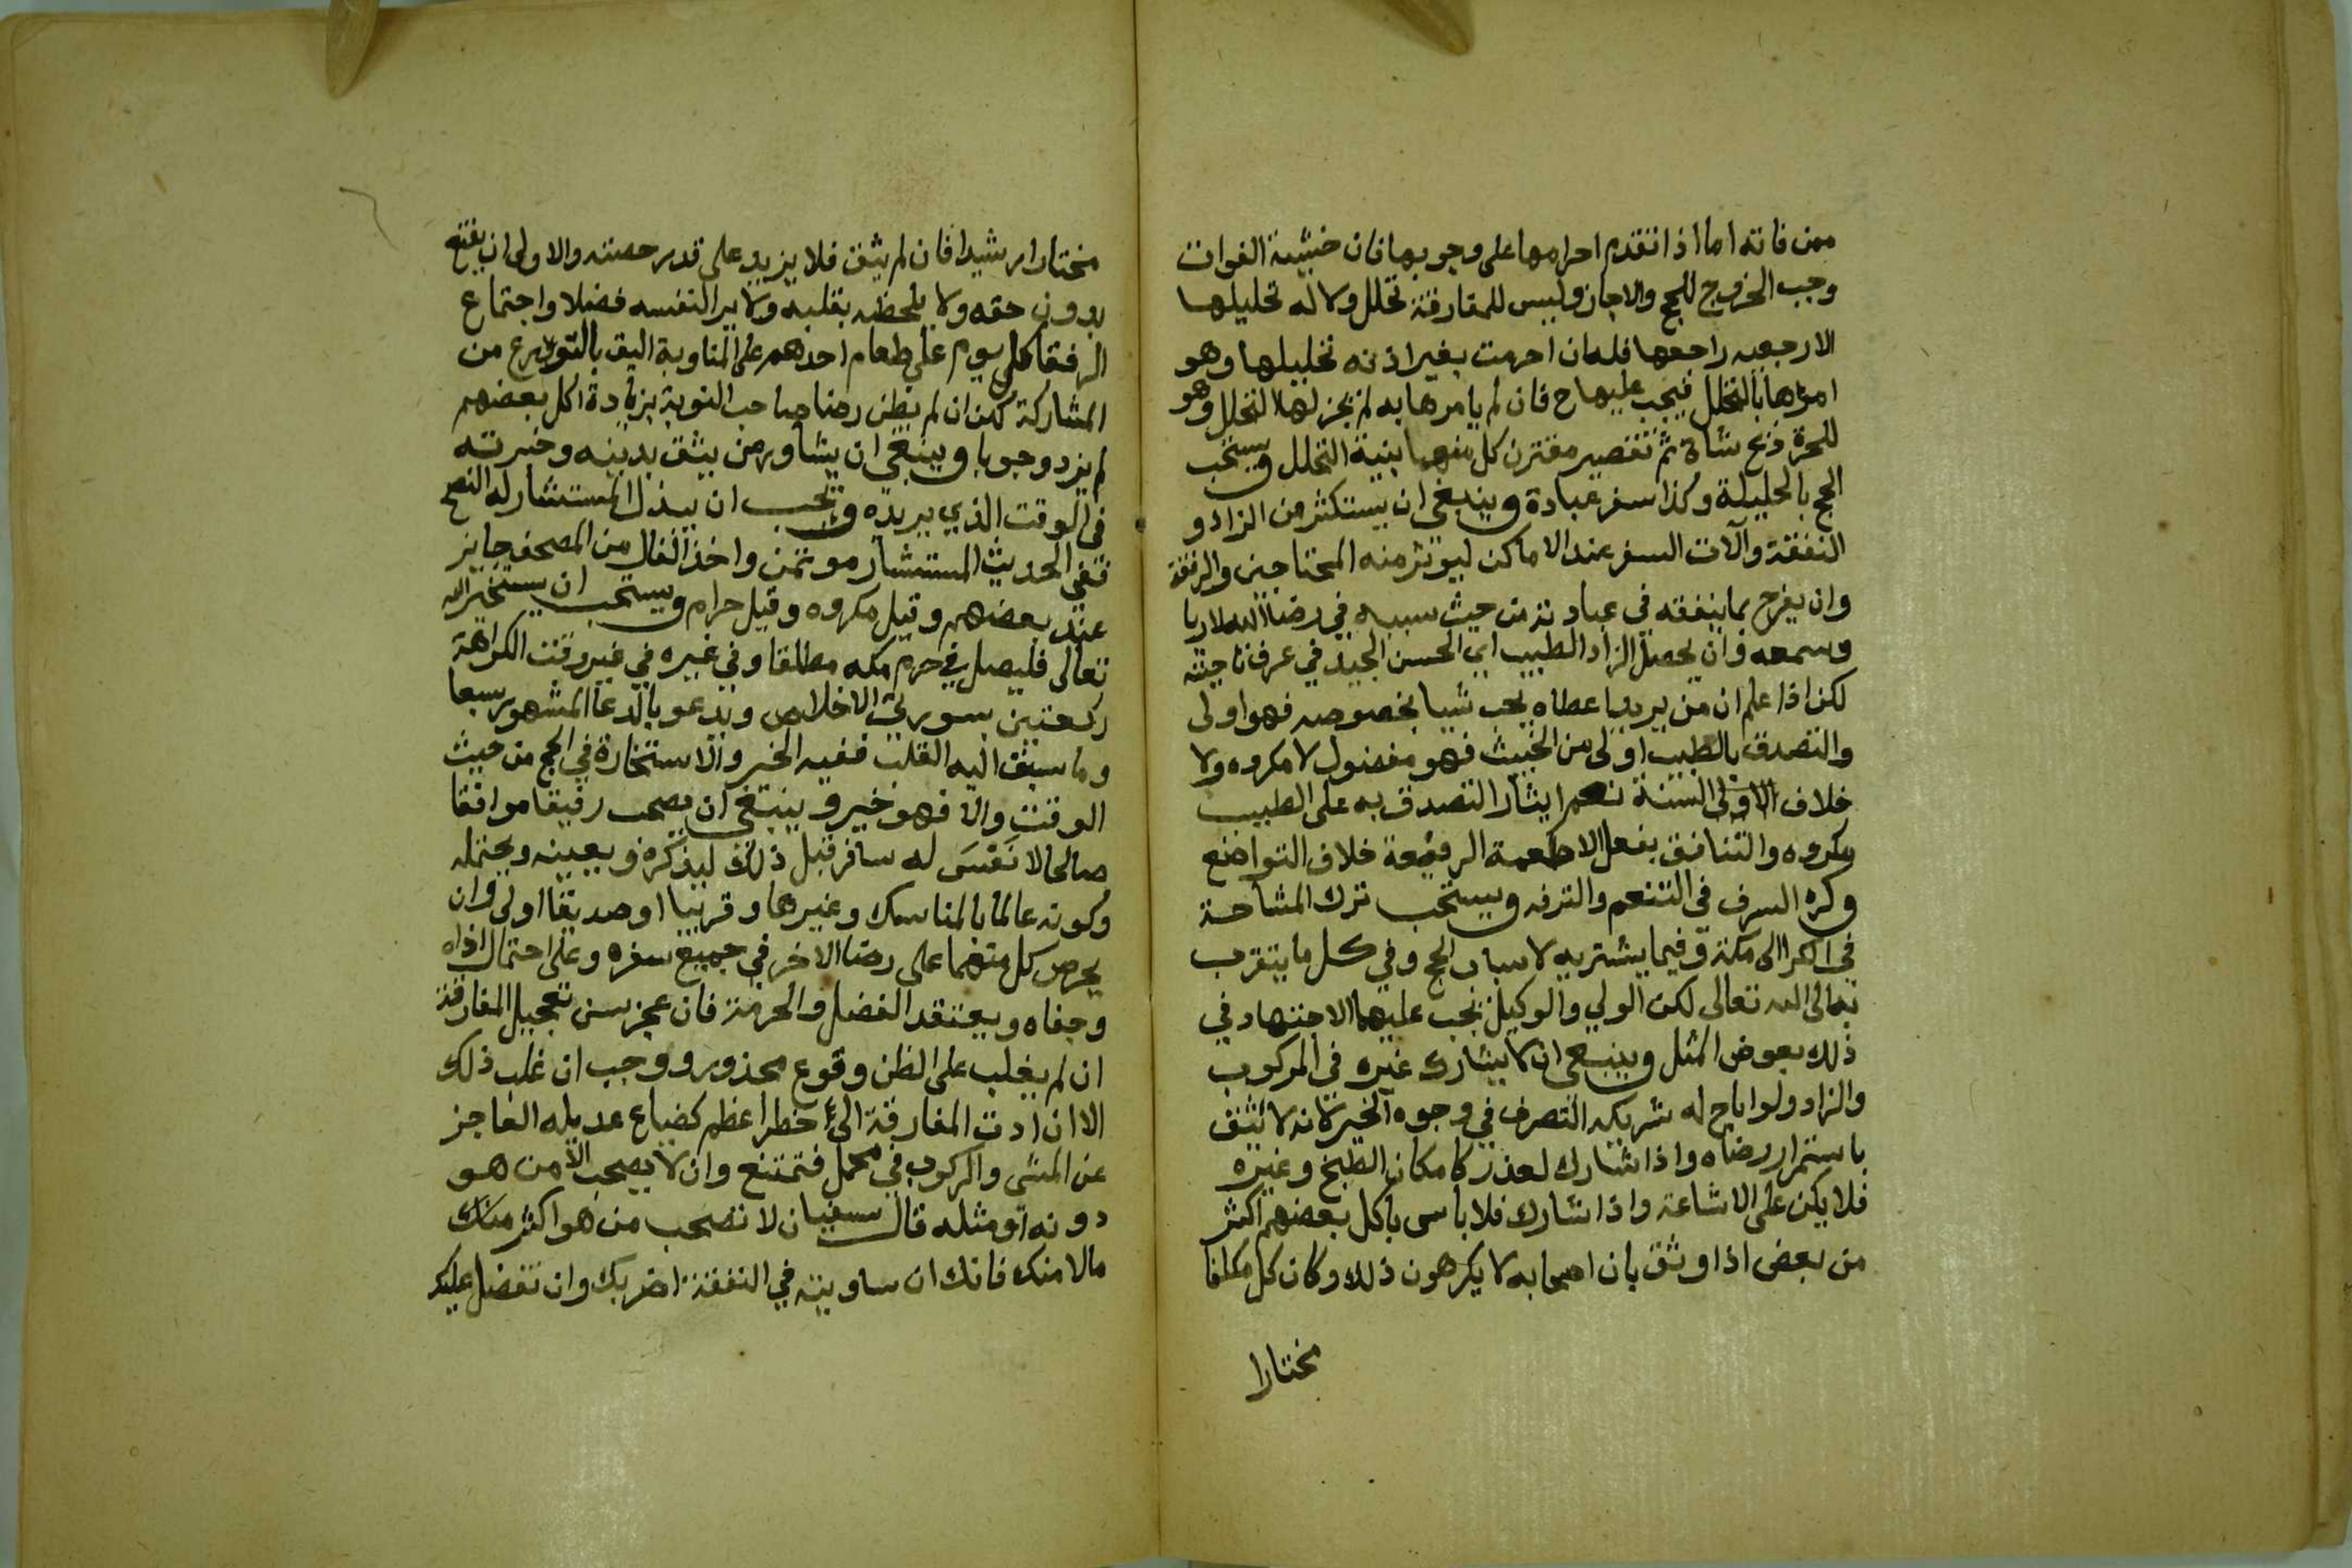 ممن فاته اما اذا تقدم احرامها على وجوبها فان خشيت الفوات
وجب الخروج للحج والا جاز وليس للمفارقة تحلل ولا له تحليلها
الا رجعيه راجعها فله ان احرمت بغير اذنه تحليلها وهو
امرها بالتحلل فيجب عليها ح فان لم يامرها به لم يجز لها التحلل وهو
للحرة ذبح شاة ثم تقصير مقترن كل منهما بنية التحلل ويستحب
الحج بالحليلة وكذا سفر عبادة وينبغي ان يستكثر من الزاد و
النفقة وآلات السفر عند الاماكن ليوثر منه المحتاجين والرفقة
وان يفرح بما ينفقه في عباد تة من حيث سببه في رضا الله لا ريا
وسمعه وان يحصل الزاد الطيب اي الحسن الجيد في عرف ناحيته
لكن اذا علم ان من يريد اعطاه يحب شيا بخصوصه فهو اولى
والتصدق بالطيب اولى من الخبيث فهو مفضول لا مكروه ولا
خلاف الاولى السنة نعم ايثار التصدق به على الطيب
مكروه والتنافق بفعل الاطعمة الرفيعة خلاف التواضع
وكره السرف في التنعم والترفه ويستحب ترك المشاحة
في الكرا الى مكة وفيما يشتريه لاسباب الحج وفي كل ما يتقرب
به الى الله تعالى لكن الولي والوكيل يجب عليهما الاجتهاد في
ذلك بعوض المثل وينبغي ان لا يشارك غيره في المركوب
والزاد ولو اباح له شريكه التصرف في وجوه الخير لانه لا يثق
باستمرار رضاه واذا شارك لعذر كامكان الطبخ وغيره
فلا يكن على الاشاعة واذا شارك فلا باس باكل بعضهم اكثر
من بعض اذا وثق بان اصحابه لا يكرهون ذلك وكان كل مكلفا
مختارا
مختارا رشيدا فان لم يثق فلا يزيد على قدر حصته والاولى ان يقنع
بدون حقه ولا يلحظه بقلبه ولا يرا لنفسه فضلا واجتماع
الرفقا كل يوم على طعام احدهم على المناوبة اليق بالتورع من
المشاركة لكن ان لم يظن رضا صاحب النوبة بزيادة اكل بعضهم
لم يزد وجوبا وينبغي ان يشاور من يثق بدينه وخبرته
في الوقت الذي يريده ويجب ان يبذل المستشار له النصح
ففي الحديث المستشار موتمن واخذ الفال من المصحف جايز
عند بعضهم وقيل مكروه وقيل حرام ويستحب ان يستخير الله
تعالى فليصل في حرم مكه مطلقا وفي غيره في غير وقت الكراهة
ركعتين بسورتي الاخلاص ويدعو بالدعا المشهور سبعا
وما سبق اليه القلب ففيه الخير والاستخارة في الحج من حيث
الوقت والا فهو خير وينبغي ان يصحب رفيقا موافقا
صالحا لا نَفْسَى له سافر قبل ذلك ليذكره ويعينه ويحتمله
وكونه عالما بالمناسك وغيرها وقريبا او صديقا اولى وان
يحرص كل منهما على رضا الاخر في جميع سفره وعلى احتمال اذاه
وجفاه ويعتقد الفضل والحرمة فان عجز سن تعجيل المفارقة
ان لم يغلب على الظن وقوع محذور ووجب ان غلب ذلك
الا ان ادت المفارقة الى خطر اعظم كضياع عديله العاجز
عن المشى والركوب في محمل فتمتنع وان لا يصحب الا من هو
دونه او مثله قال سفيان لا تصحب من هو اكثر منك
مالا منك فانك ان ساويته في النفقة اضر بك وان تفضل عليك